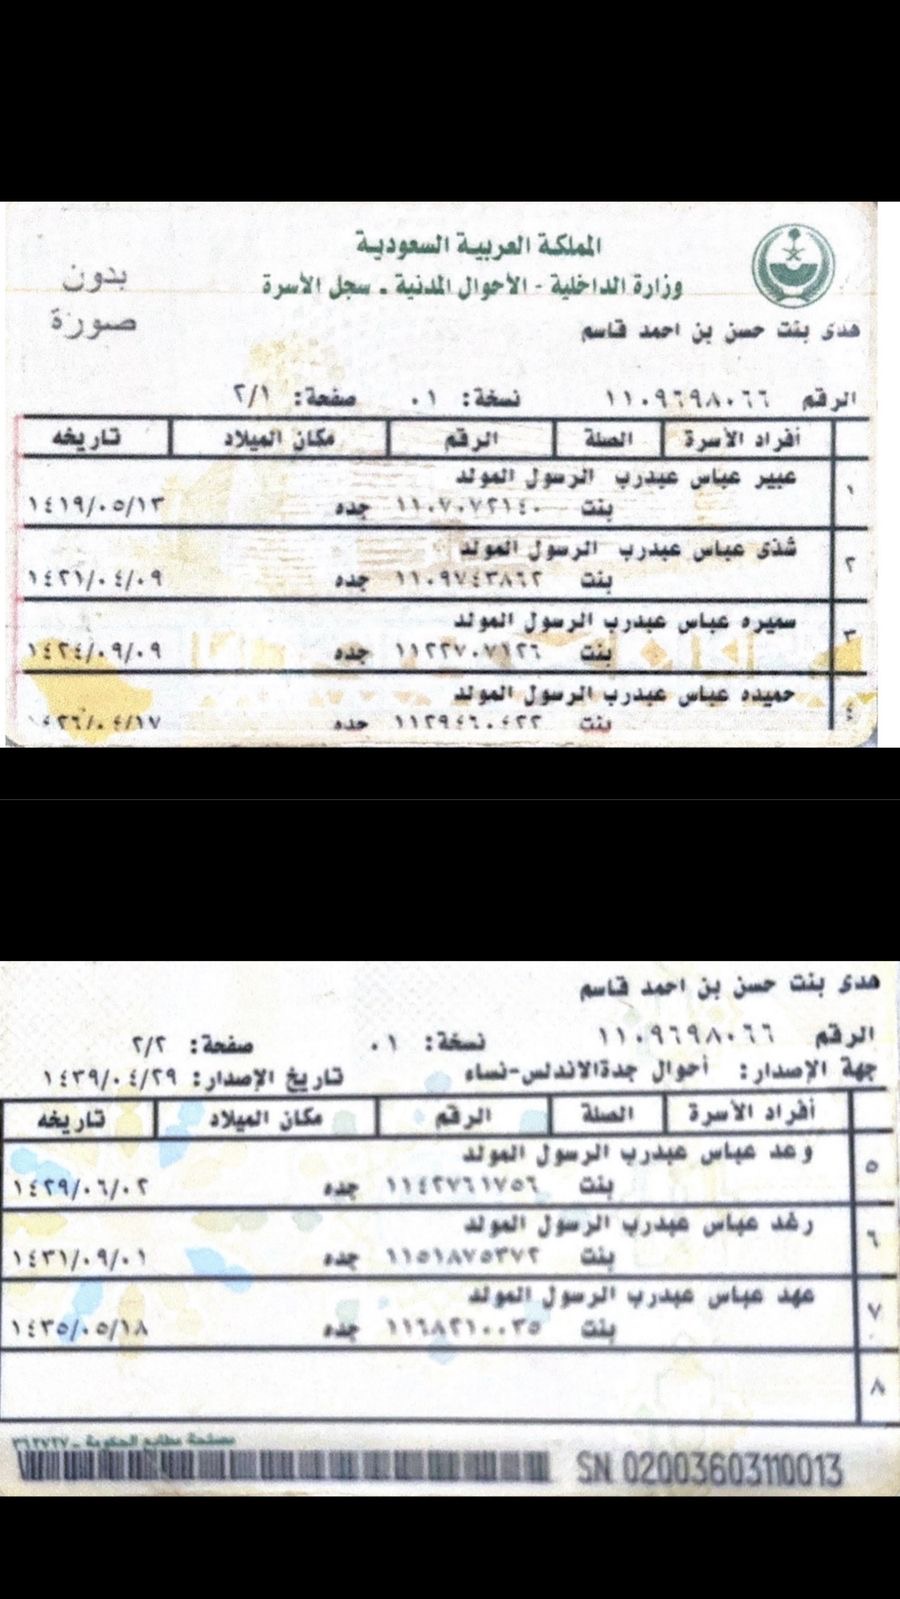 المملكة العربية السعودية
وزارة الداخلية - الأحوال المدنية - سجل الأسرة
بدون
صورة
هدى بنت حسن بن احمد قاسم
الرقم ١١٠٩٦٩٨٠٦٦ نسخة: ٠١ صفحة: ٢/١
أفراد الأسرة الصلة الرقم مكان الميلاد تاريخه
١ عبير عباس عبدرب الرسول المولد
بنت ١١٠٧٠٧٢١٤٠ جده ١٤١٩/٠٥/١٣
٢ شذى عباس عبدرب الرسول المولد
بنت ١١٠٩٧٤٣٨٦٢ جده ١٤٢١/٠٤/٠٩
٣ سميره عباس عبدرب الرسول المولد
بنت ١١٢٢٧٠٧١٢٦ جده ١٤٢٤/٠٩/٠٩
٤ حميده عباس عبدرب الرسول المولد
بنت ١١٢٩٤٦٠٤٢٢ جده ١٤٢٦/٠٤/١٧
هدى بنت حسن بن احمد قاسم
الرقم ١١٠٩٦٩٨٠٦٦ نسخة: ٠١ صفحة: ٢/٢
جهة الإصدار: أحوال جدةالاندلس-نساء تاريخ الإصدار: ١٤٣٩/٠٤/٢٩
أفراد الأسرة الصلة الرقم مكان الميلاد تاريخه
٥ وعد عباس عبدرب الرسول المولد
بنت ١١٤٢٧٦١٧٥٦ جده ١٤٢٩/٠٦/٠٢
٦ رغد عباس عبدرب الرسول المولد
بنت ١١٥١٨٧٥٣٧٢ جده ١٤٣١/٠٩/٠١
٧ عهد عباس عبدرب الرسول المولد
بنت ١١٦٨٢١٠٠٣٥ جده ١٤٣٥/٠٥/١٨
٨
مصلحة مطابع الحكومة -
SN 02003603110013